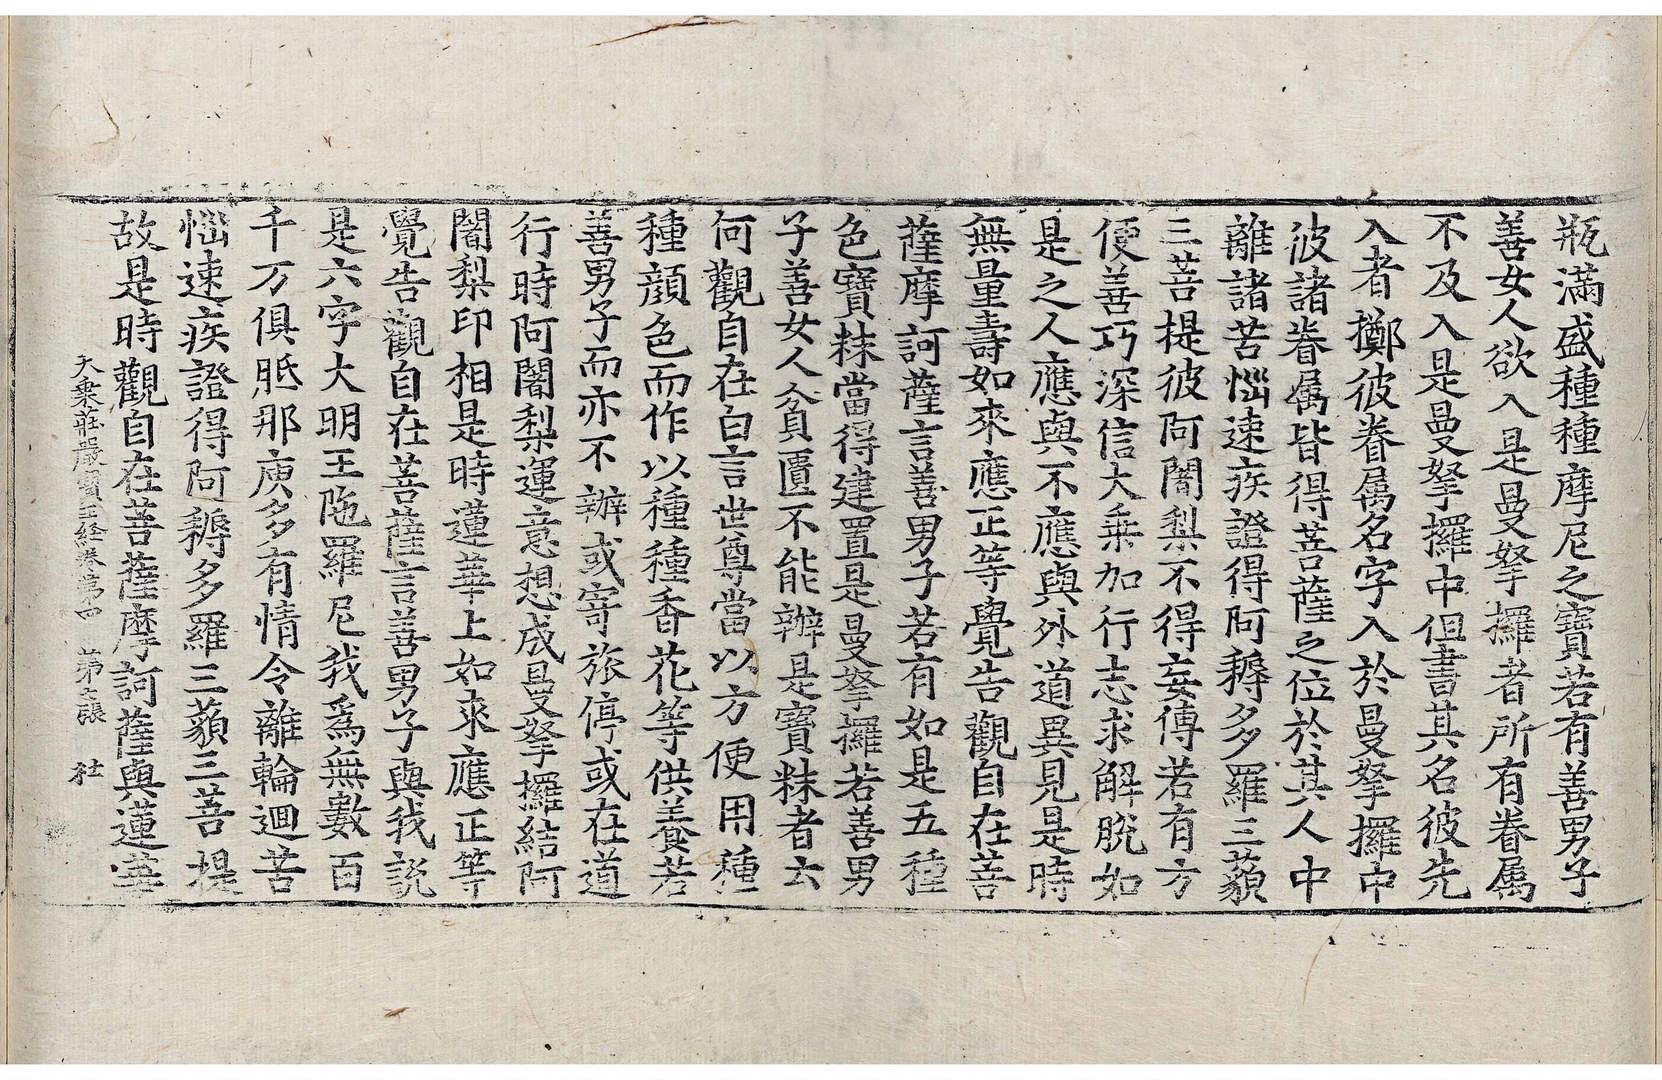 瓶滿盛種種摩尼之寶若有善男子
善女人欲入是曼拏攞者所有眷属
不及入是曼拏攞中但書其名彼先
入者擲彼眷属名字入於曼拏攞中
彼諸眷属皆得菩薩之位於其人中
離諸苦惱速疾證得阿耨多羅三藐
三菩提彼阿闍梨不得妄傳若有方
便善巧深信大乗加行志求解脫如
是之人應與不應與外道異見是時
無量壽如來應正等覺告觀自在菩
薩摩訶薩言善男子若有如是五種
色寶粖當得建置是曼拏攞若善男
子善女人貧匱不能辦是寶粖者云
何觀自在白言世尊當以方便用種
種顔色而作以種種香花等供養若
善男子而亦不辦或寄旅停或在道
行時阿闍梨運意想成曼拏攞結阿
闍梨印相是時蓮華上如來應正等
覺告觀自在菩薩言善男子與我說
是六字大明王陁羅尼我爲無數百
千万俱胝那庾多有情令離輪迴苦
惱速疾證得阿耨多羅三藐三菩提
故是時觀自在菩薩摩訶薩與蓮華
大乗莊嚴寶王経卷第四 第七張 社